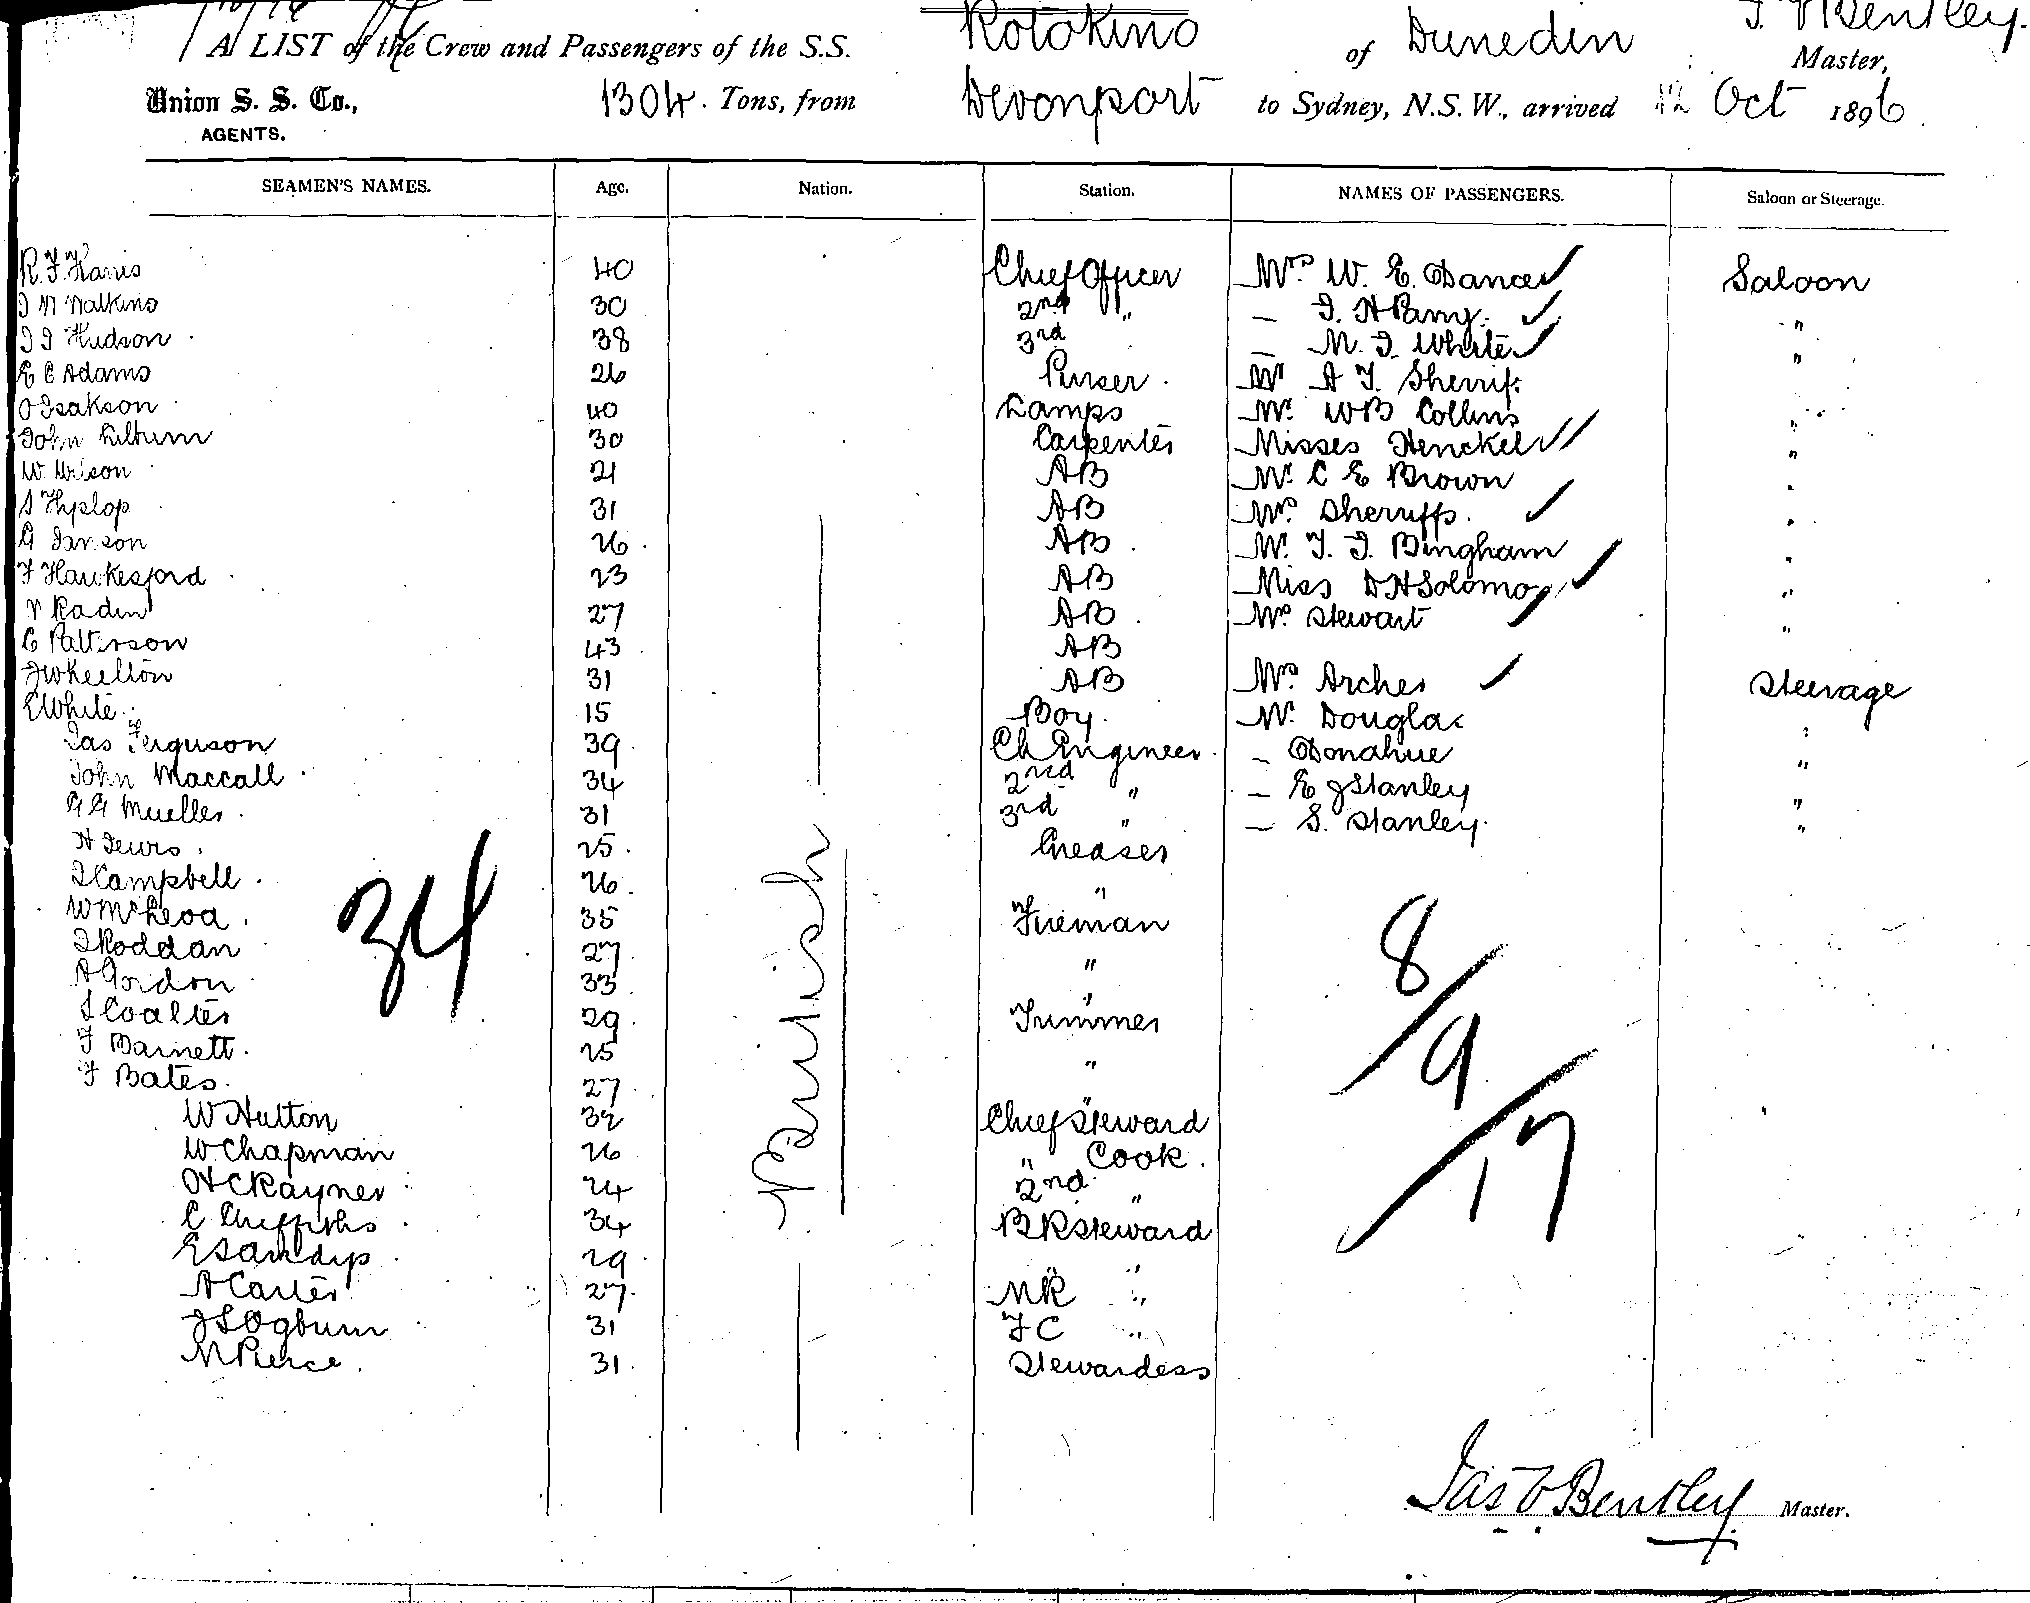 A LIST of the Crew and Passengers of the S.S. Rotokino of Dunedin Bentley. Master,
Union S. S. Co., AGENTS. 1304. Tons, from Devonport to Sydney, N.S.W., arrived 12 Oct 1896
SEAMEN'S NAMES. Age. Nation. Station. NAMES OF PASSENGERS. Saloon or Steerage.
R. F. Harris 40 Chief Officer Mrs W. E. Dance Saloon
30 2nd " — Parry. "
Hudson 38 3rd — White "
E C Adams 26 Purser. Mr A T. Sherriff
O Isakson 40 Lamps Mr. W B Collins "
John Lilburn 30 Carpenter Misses Henckel "
W. 21 AB Mr C E Brown "
S Hyslop 31 AB Mrs Sherriffs. "
26 AB Mr. Bingham "
F Hawkesford 23 AB Miss D H Solomon "
27 AB Mrs Stewart "
C Patterson 43 AB
J Wheelton 31 AB Mrs Archer Steerage
E White 15 Boy. Mr. Douglas "
Jas Ferguson 39 Ch Engineer — Donahue "
John Maccall 34 2nd " — E J Stanley "
Mueller 31 3rd " — S. Stanley. "
25 Greaser
J Campbell 26 "
W McLeod 35 Fireman
J Roddan 27 "
A Gordon 33 "
S Coalter 29 Trimmer
F Barnett. 25 "
F Bates. 27 "
W Hutton 32 Chief Steward
W. Chapman 26 " Cook.
H C Rayner 24 2nd "
C Griffiths 34 B R Steward
E Sandys 29 "
A Carter 27 M R "
J S Ogburn 31 F C "
M Pierce. 31 Stewardess
British
34
8
9
17
Jas V Bentley Master.